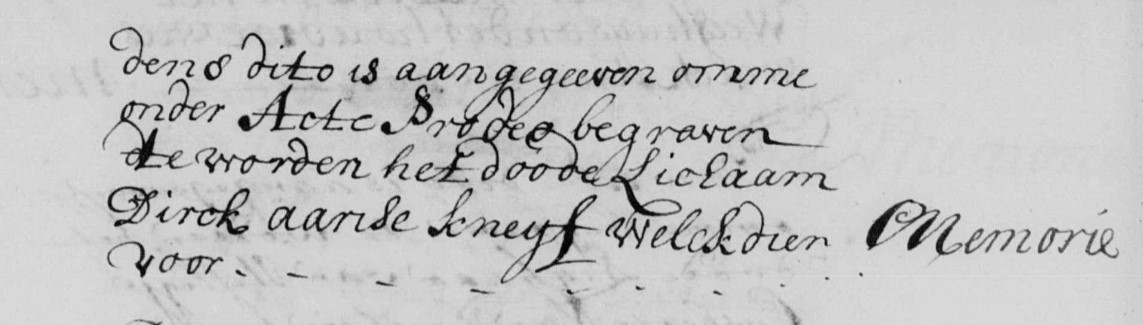 den 8 dito is aangegeeven omme
onder Acte Prodeo begraven
te worden het doode Lichaam
Dirck aarise kneyf Welck dien Memorie
voor. - - - - - - -